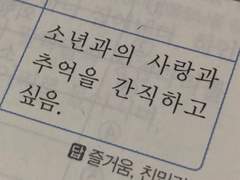 소년과의 사랑과
추억을 간직하고
싶음.
답 즐거움, 친밀